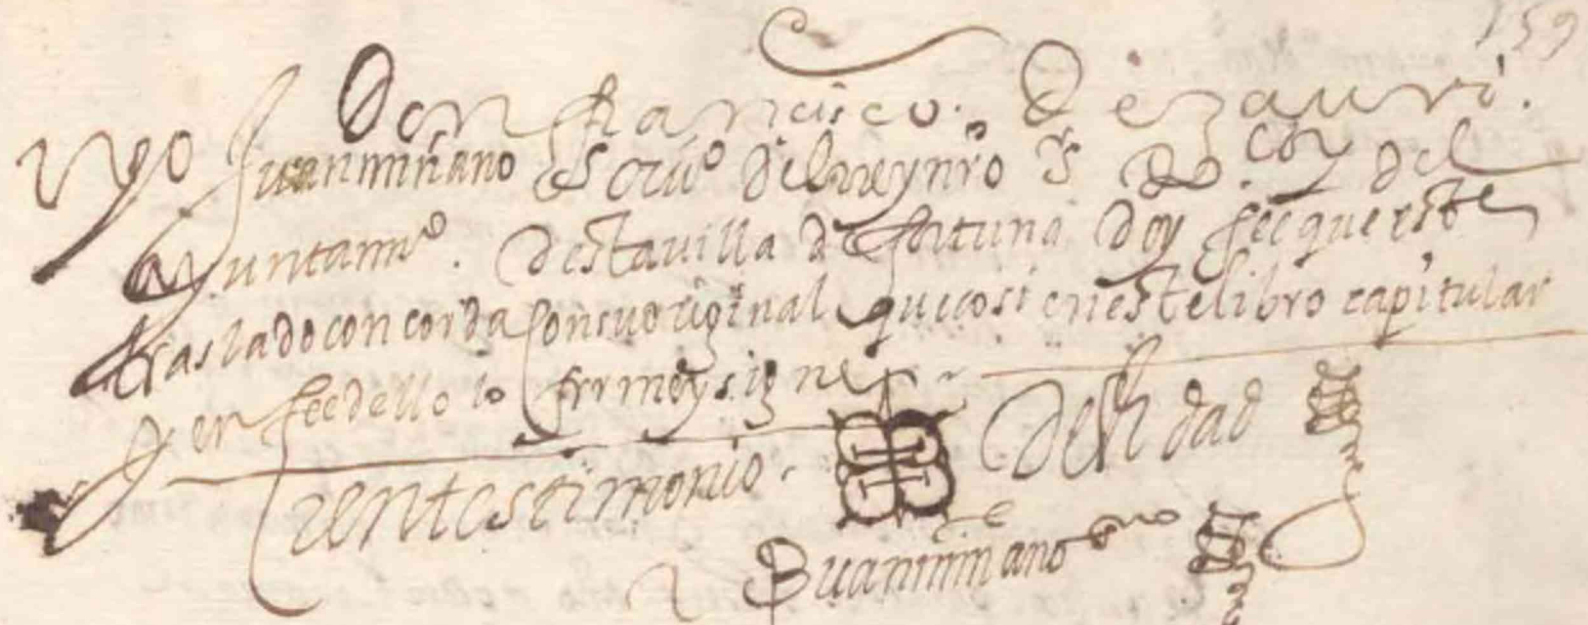 159
Don francisco. De zauri.
yo Juan miñano Escriuº del rreyno Y del
ayuntamº. destauilla de fortuna doy fee que este
traslado concorda con suoriginal que cosi eneste libro capitular
y en fee dello lo firme y signe
en testimonio. de berdad
Juan miñano